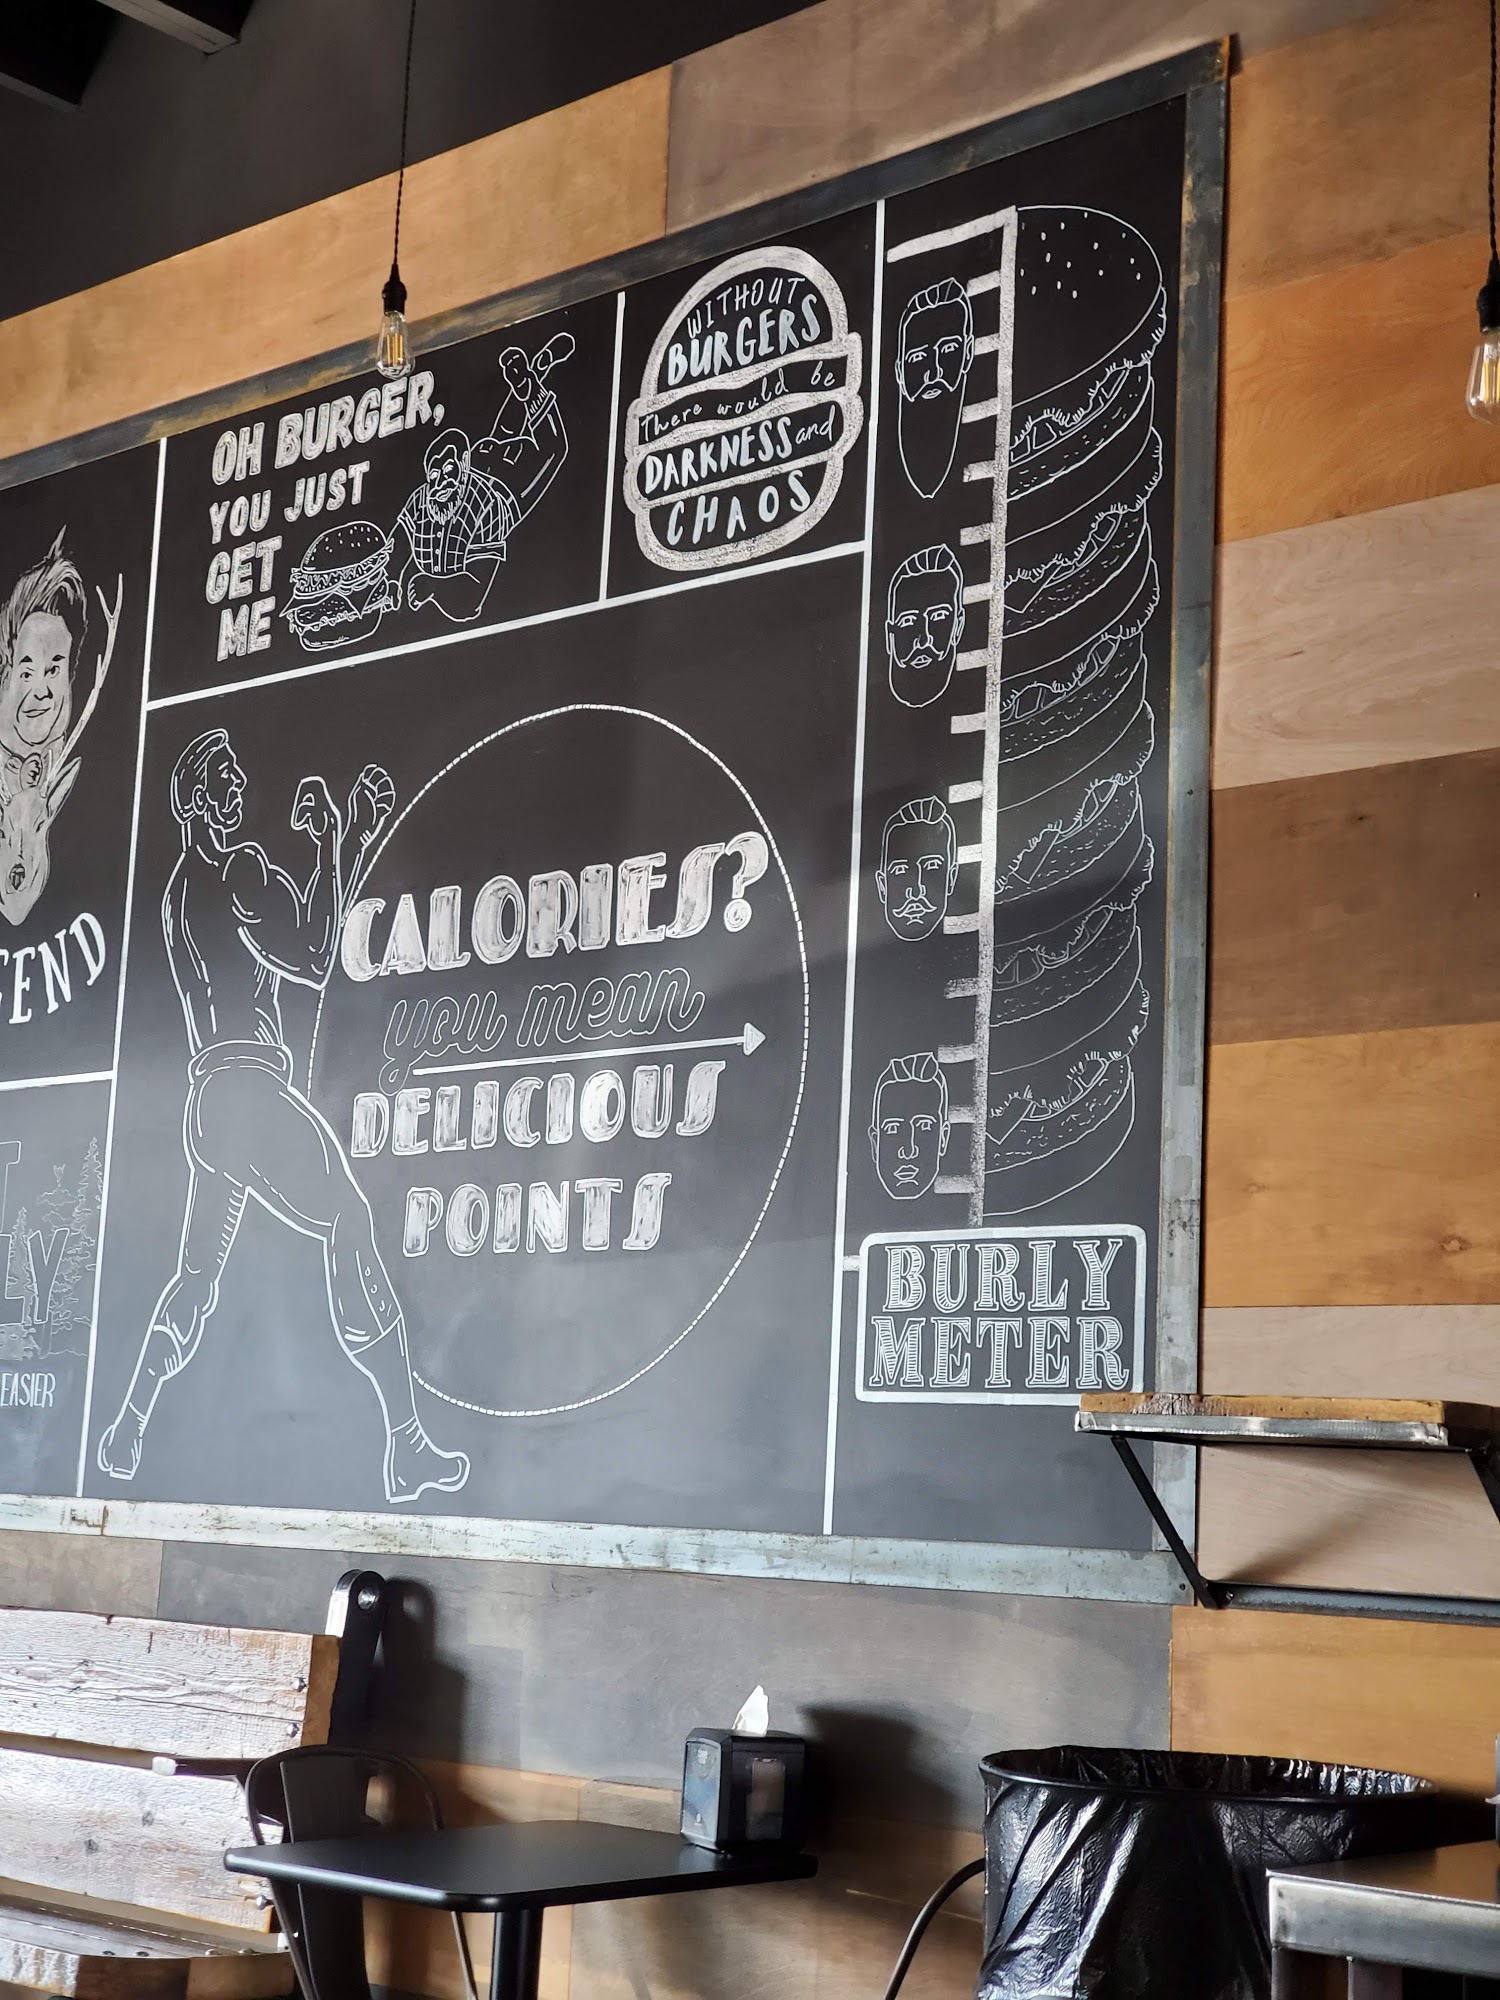 OH BURGER,
YOU JUST
GET
ME
WITHOUT
BURGERS
there would be
DARKNESS and
CHAOS
CALORIES?
you mean
DELICIOUS
POINTS
BURLY
METER
EASIER